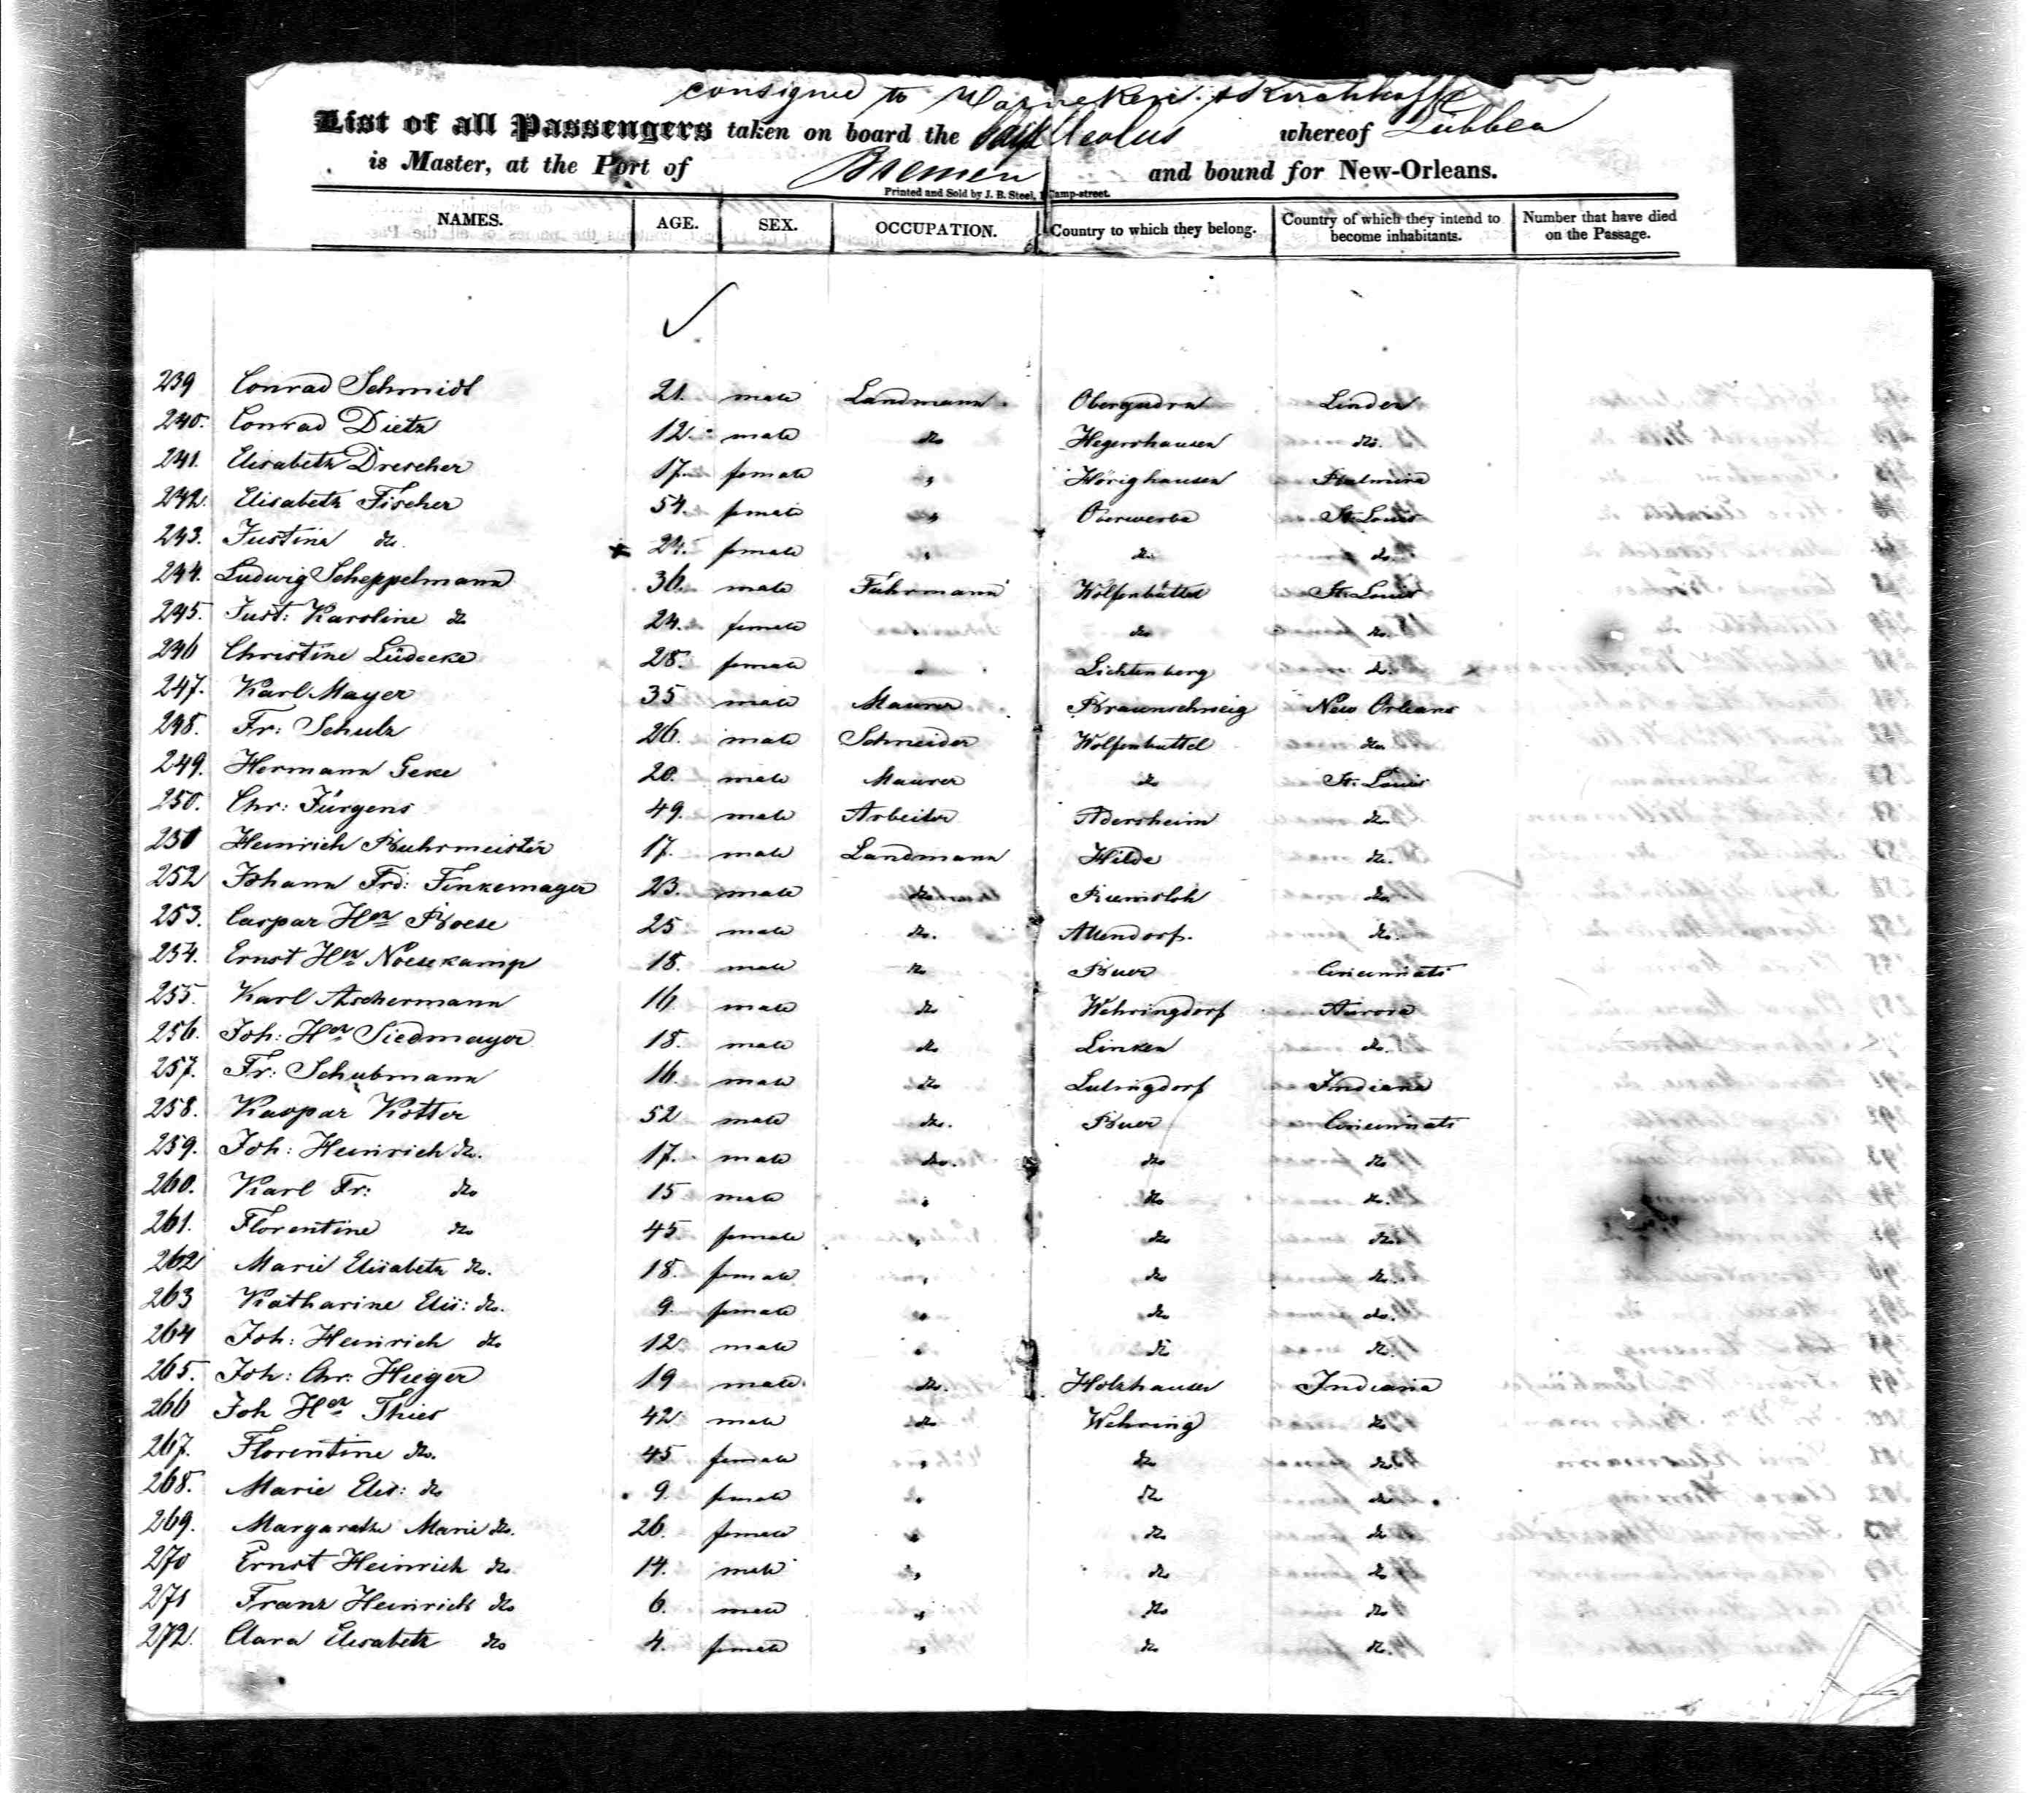 consigned to
List of all Passengers taken on board the Ship Aeolus whereof Lübben
is Master, at the Port of Bremen and bound for New-Orleans.
Printed and Sold by J. B. Steel, Camp-street.
NAMES. AGE. SEX. OCCUPATION. Country to which they belong. Country of which they intend to become inhabitants. Number that have died on the Passage.
239 Conrad Schmidt 21. male Landmann. Linden
240. Conrad Dietz 12. male do Hegershausen do.
241. Elisabeth Drescher 17. female " Hörighausen Palmira
242. Elisabeth Fischer 54. female " Oberwerba St. Louis
243. Justine do. 24. female " do. do.
244. Ludwig Scheppelmann 36. male Fuhrmann Wolfenbüttel St. Louis
245. Just: Karoline do 24. female do do.
246 Christine Lüdecke 28. female " Lichtenberg do.
247. Karl Mayer 35 male Maurer Braunschweig New Orleans
248. Fr: Schulz 26. male Schneider Wolfenbuttel do
249. Hermann Geke 20. male Maurer do St. Louis
250. Chr: Jürgens 49. male Arbeiter Adersheim do
251 Heinrich Buhrmeister 17. male Landmann Hilde do.
252 Johann Frd: Finkemayer 23. male do Riemsloh do
253. Caspar Hr Boese 25 male do. Attendorf. do.
254. Ernst Hr Noesekamp 18. male do Buer Cincinnati
255. Karl Aschermann 16 male do Wehringdorf Aurora
256. Joh: Hr Siedmayer 18. male do Linken do.
257. Fr: Schubmann 16. male do Indiana
258. Kaspar Kotter 52 male do. Buer Cincinnati
259. Joh: Heinrich do. 17. male do. do do
260. Karl Fr: do 15 male " do do.
261. Florentine do 45 female " do do
262 Marie Elisabeth do. 18. female " do do.
263 Katharine Elis: do. 9. female " do do.
264 Joh: Heinrich do 12 male " do do.
265. Joh: Chr: Hieger 19 male. do. Holzhausen Indiana
266 Joh Hr Thies 42 male do Wehring do
267. Florentine do. 45 female " do do
268. Marie Elis: do 9. female " do do
269. Margarethe Marie do. 26. female " do do
270 Ernst Heinrich do 14. male " do do
271 Franz Heinrich do 6. male " do do
272. Clara Elisabeth do 4. female " do do.